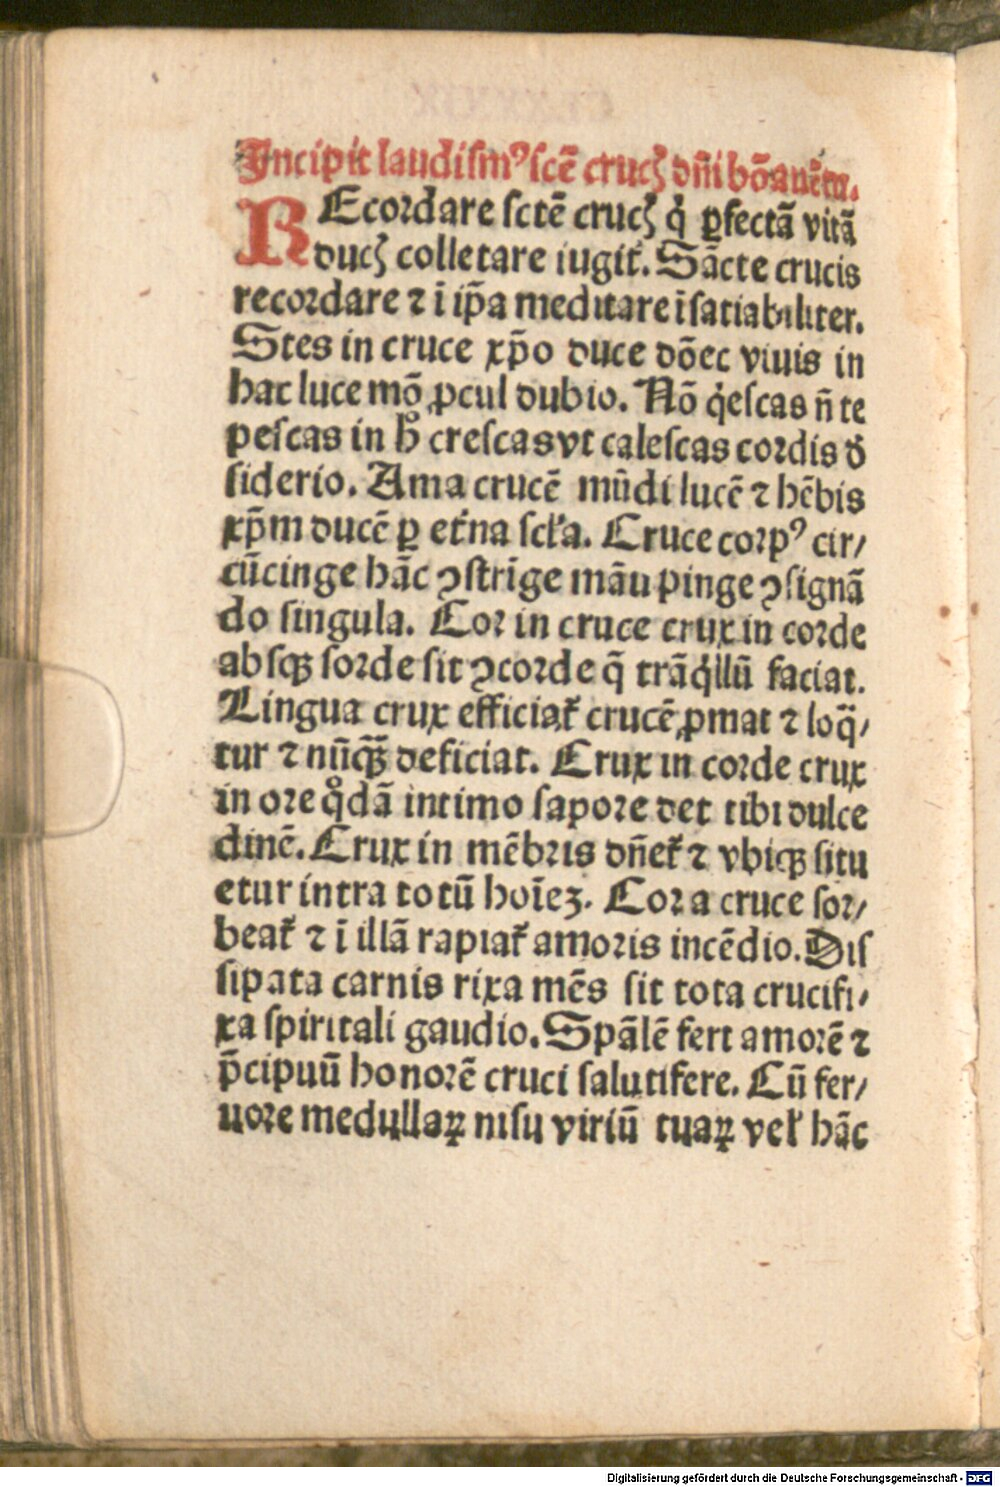 Incipit laudismꝰ ſcē crucꝭ dn̄i bōauētu.
REcordare ſctē crucꝭ q̇ ꝑfectā vitā
ducꝭ colletare iugit̉. Sācte crucis
recordare ⁊ ī ip̄a meditare īſatiabiliter.
Stes in cruce xp̄o duce dōec viuis in
hac luce mō ꝓcul dubio. Nō q̇eſcas n̄ te
peſcas in h̊ creſcas vt caleſcas cordis d̄
ſiderio. Ama crucē mūdi lucē ⁊ hēbis
xp̄m ducē ꝑ et̉na ſcl̉a. Cruce corpꝰ cir/
cūcinge hāc ꝯſtrīge māu pinge ꝯſignā
do ſingula. Cor in cruce crux in corde
abſqꝫ ſorde ſit ꝯcorde q̄ trāq̇llū faciat.
Lingua crux efficiat̉ crucē ꝓmat ⁊ loq̄/
tur ⁊ nūqꝫ̄ deficiat. Crux in corde crux
in ore q̊dā intimo ſapore det tibi dulce
dinē. Crux in mēbris dn̄et̉ ⁊ vbiqꝫ ſitu
etur intra totū hoīeꝫ. Cor a cruce ſor/
beat̉ ⁊ ī illā rapiat̉ amoris incēdio. Diſ
ſipata carnis rixa mēs ſit tota crucifi/
xa ſpiritali gaudio. Spālē fert amorē ⁊
p̄cipuū honorē cruci ſalutifere. Cū fer/
uore medullaꝝ niſu viriū tuaꝝ vel̉ hāc
Digitalisierung gefördert durch die Deutsche Forschungsgemeinschaft - DFG